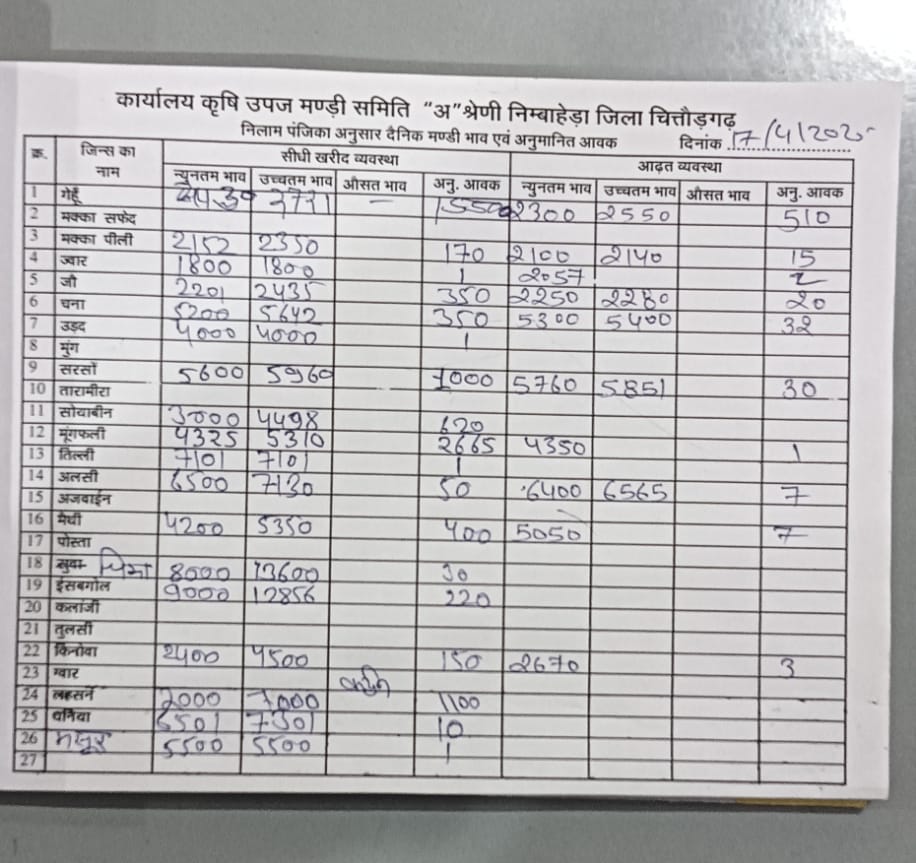 कार्यालय कृषि उपज मण्डी समिति “अ”श्रेणी निम्बाहेड़ा जिला चित्तौड़गढ़
निलाम पंजिका अनुसार दैनिक मण्डी भाव एवं अनुमानित आवक दिनांक 17/4/202
क्र. जिन्स का नाम सीधी खरीद व्यवस्था आढ़त व्यवस्था
न्युनतम भाव उच्चतम भाव औसत भाव अनु. आवक न्युनतम भाव उच्चतम भाव औसत भाव अनु. आवक
1 गेहूँ — 15500 2300 2550 510
2 मक्का सफेद
3 मक्का पीली 2152 2350 170 2100 2140 15
4 ज्वार 1800 1800 1 2057 2
5 जौ 2201 2435 350 2250 2280 20
6 चना 5200 5642 350 5300 5400 32
7 उड़द 4000 4000 1
8 मुंग
9 सरसों 5600 5960 1000 5760 5851 30
10 तारामीरा
11 सोयाबीन 3000 4498 620
12 मूंगफली 4325 5310 2665 4350 1
13 तिल्ली 7101 7101 1
14 अलसी 6500 7130 50 6400 6565 7
15 अजवाईन
16 मैथी 4200 5350 400 5050 7
17 पोस्ता
18 सुवा 8000 13600 30
19 ईसबगोल 9000 12856 220
20 कलांजी
21 तुलसी
22 किनोवा 2400 4500 150 2670 3
23 ग्वार
24 लहसन 2000 7000 1100
25 धनिया 6501 7301 10
26 मसूर 5500 5500 1
27